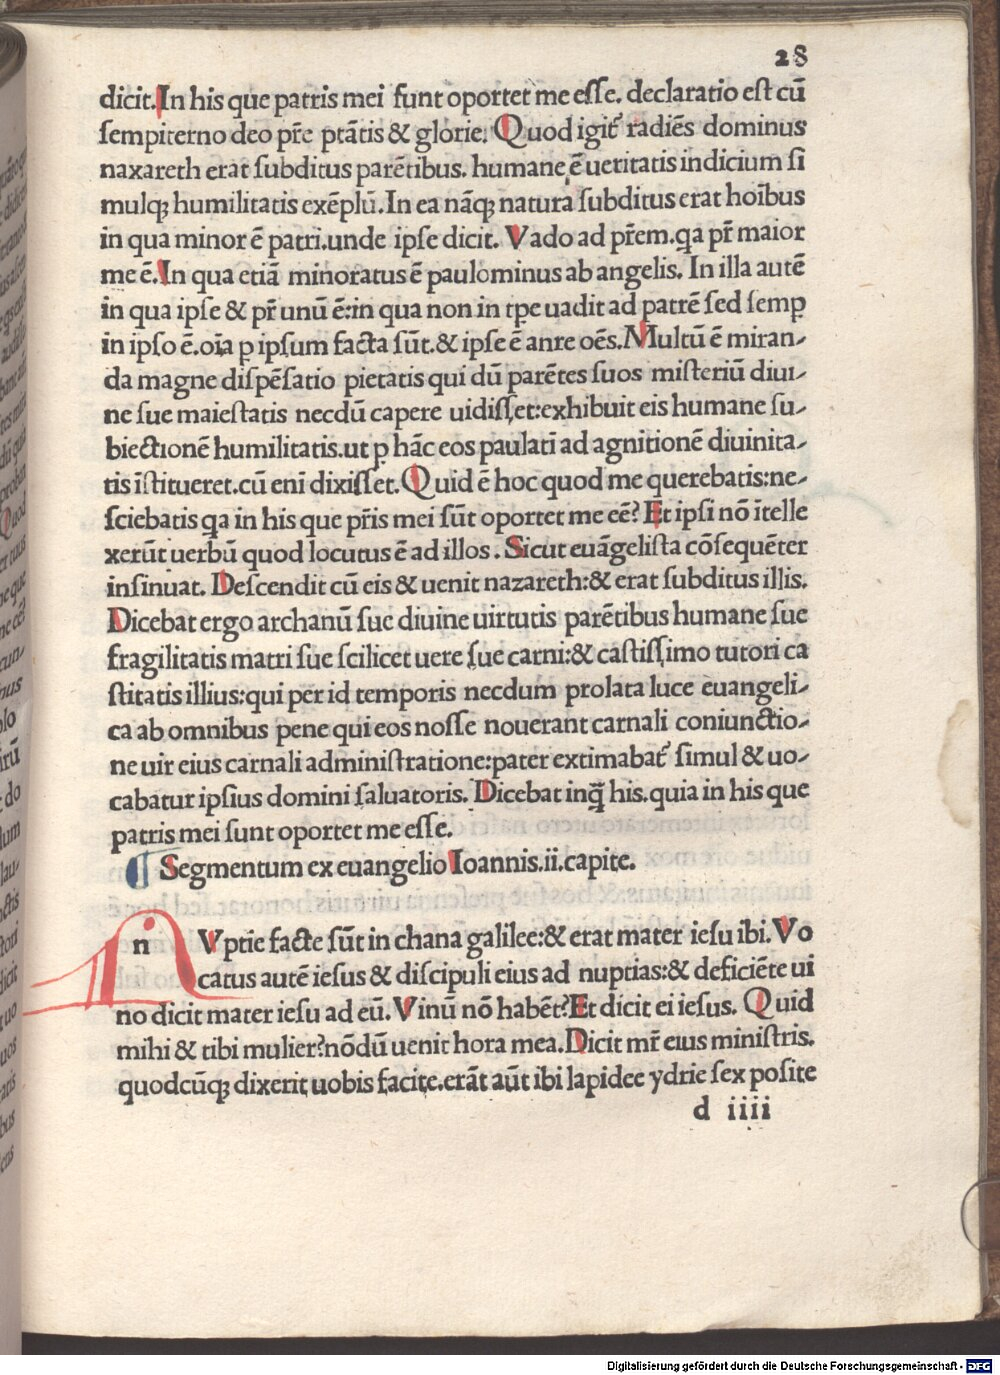 28
dicit. In his que patris mei sunt oportet me esse. declaratio est cū
sempiterno deo pr̄e ptātis & glorie. Quod igit᷑ radiēs dominus
naxareth erat subditus parētibus. humane ē ueritatis indicium si
mulqꝫ humilitatis exēplū. In ea nāqꝫ natura subditus erat hoībus
in qua minor ē patri. unde ipse dicit. Vado ad pr̄em. qa pr̄ maior
me ē. In qua etiā minoratus ē paulominus ab angelis. In illa autē
in qua ipse & pr̄ unū ē: in qua non in tp̄e uadit ad patrē sed semꝑ
in ipso ē. oīa ꝑ ipsum facta sūt. & ipse ē anre oēs. Multū ē miran-
da magne dispēsatio pietatis qui dū parētes suos misteriū diui-
ne sue maiestatis necdū capere uidisset: exhibuit eis humane su-
biectionē humilitatis. ut ꝑ hāc eos paulatī ad agnitionē diuinita-
tis īstitueret. cū eni dixisset. Quid ē hoc quod me querebatis: ne-
sciebatis qa in his que pr̄is mei sūt oportet me eē? Et ipsi nō ītelle
xerūt uerbū quod locutus ē ad illos. Sicut euāgelista cōsequēter
insinuat. Descendit cū eis & uenit nazareth: & erat subditus illis.
Dicebat ergo archanū sue diuine uirtutis parētibus humane sue
fragilitatis matri sue scilicet uere sue carni: & castissimo tutori ca
stitatis illius: qui per id temporis necdum prolata luce euangeli-
ca ab omnibus pene qui eos nosse nouerant carnali coniunctio-
ne uir eius carnali administratione: pater extimabat᷑ simul & uo-
cabatur ipsius domini saluatoris. Dicebat inq̄ his. quia in his que
patris mei sunt oportet me esse.
¶ Segmentum ex euangelio Ioannis. ii. capite.
n Vptie facte sūt in chana galilee: & erat mater iesu ibi. Vo
catus autē iesus & discipuli eius ad nuptias: & deficiēte ui
no dicit mater iesu ad eū. Vinū nō habēt? Et dicit ei iesus. Quid
mihi & tibi mulier? nōdū uenit hora mea. Dicit mr̄ eius ministris.
quodcūqꝫ dixerit uobis facite. erāt aūt ibi lapidee ydrie sex posite
d iiii
Digitalisierung gefördert durch die Deutsche Forschungsgemeinschaft - DFG